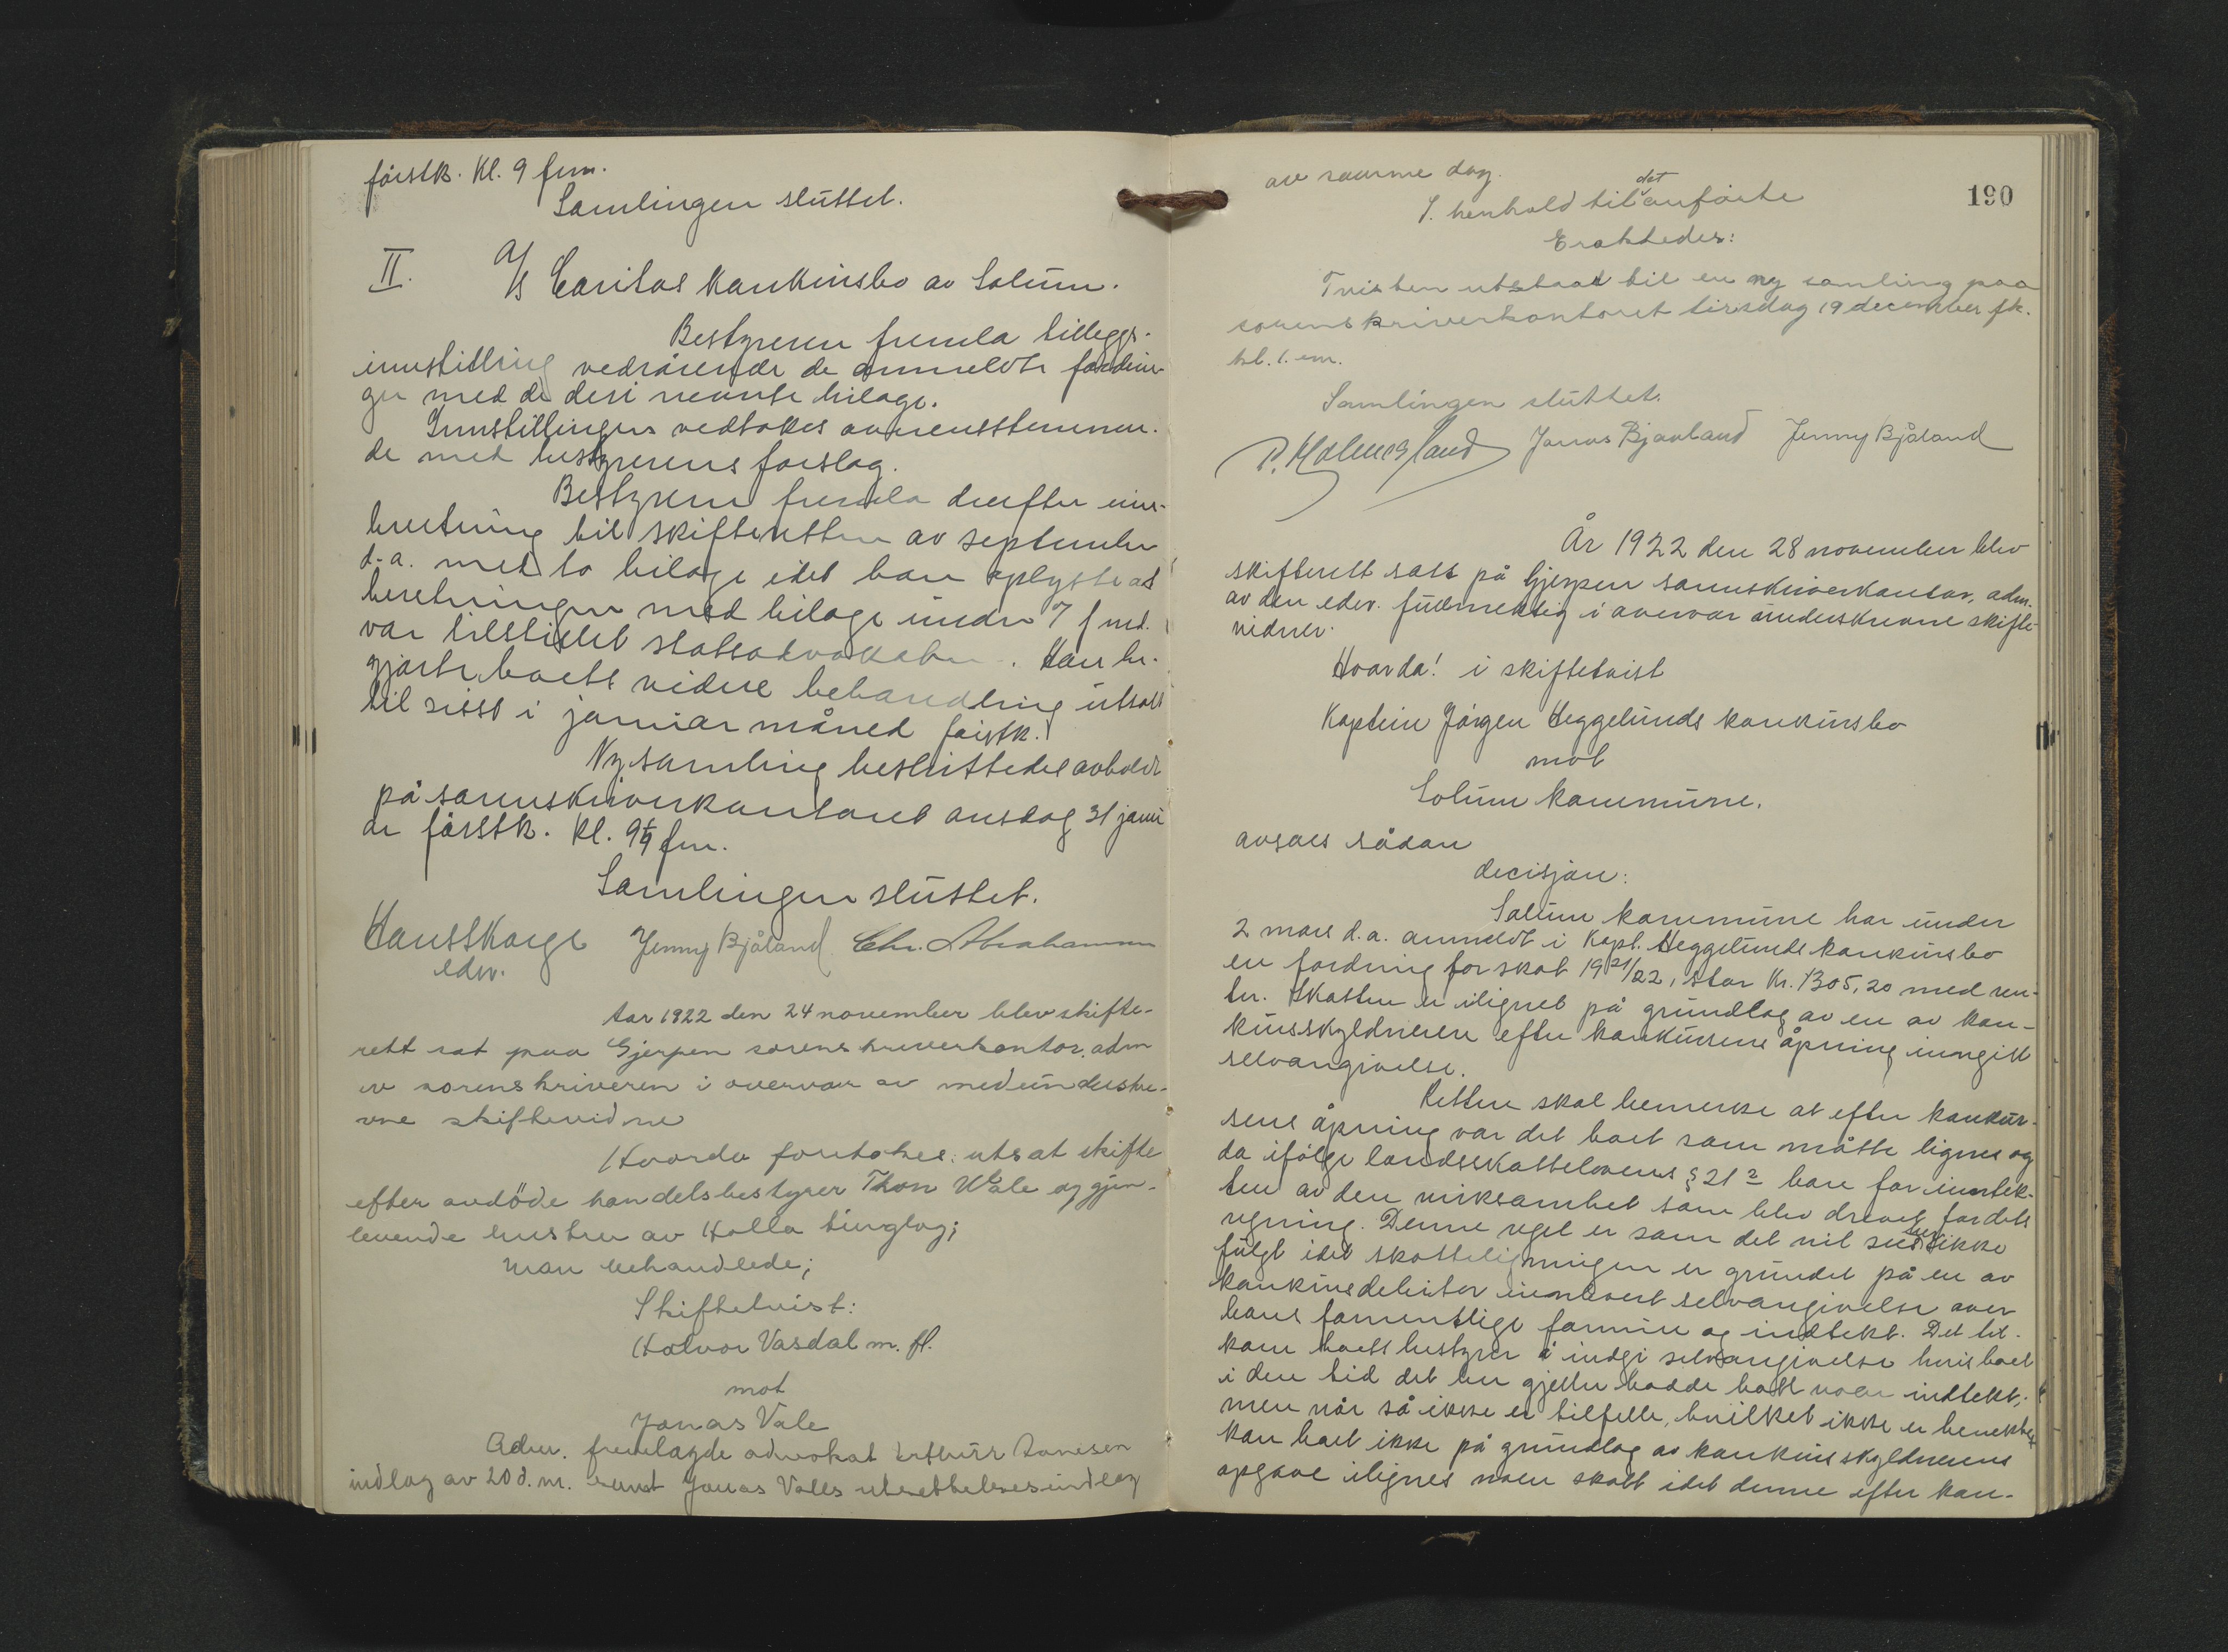 førstk. Kl. 9 fm.
Samlingen sluttet.
II. A/S Caritas konkursbo av Solum.
Bestyreren fremla tilleggs-
innstilling vedrørende de anmeldte fordrin-
ger med de deri nevnte bilage.
Innstillingen vedtokes overensstemmen-
de med bestyrerens forslag.
Bestyreren fremla derefter inn-
beretning til skifteretten av september
d.a. med to bilage idet han oplyste at
beretningen med bilage under 7 f md.
var tilstillet statsadvokaten. Han be-
gjærte boets videre behandling utsatt
til sisst i januar måned førstk.
Ny samling besluttedes avholdt
på sorenskriverkontoret onsdag 31 janu
ar førstk. kl. 9½ fm.
Samlingen sluttet.
Hans Skorge Jenny Bjåland Chr. Abrahamsen
edsv.
Aar 1922 den 24 november blev skifte-
rett sat paa Gjerpen sorenskriverkontor, adm
av sorenskriveren i overvær av medunderskre-
vne skiftevidne
Hvorda foretokes: utsat skifte
efter avdöde handelsbestyrer Thon Wale og gjen-
levende hustru av Holla tinglag;
man behandlede;
Skiftetvist:
Halvor Vasdal m. fl.
mot
Jonas Vale
Adm. fremlagde advokat Arthur Danisen
indlæg av 20 d. m. samt Jonas Vales utsettelsesindlæg
av samme dag.
190
I. henhold til det anførte
Eraktedes:
Tvisten utstaar til en ny samling paa
sorenskriverkontoret tirsdag 19 december fk.
kl. 1. em.
Samlingen sluttet.
P. Holmesland Jonas Bjaaland Jenny Bjåland
År 1922 den 28 november blev
skifterett satt på Gjerpen sorenskriverkontor, adm.
av den edsv. fullmektig i overvær underskrevne skifte-
vidner.
Hvorda! i skiftetvist
Kaptein Jørgen Heggelunds konkursbo
mot
Solum kommune.
avsaes sådan
decisjon:
Solum kommune har under
2 mars d.a. anmeldt i Kapt. Heggelunds konkursbo
en fordring for skat 1921/22, stor Kr. 1305,20 med ren-
ter. Skatten er ilignet på grundlag av en av kon-
kursskyldneren efter konkursens åpning inngitt
selvangivelse.
Retten skal bemerke at efter konkur-
sens åpning var det boet som måtte lignes og
da ifølge landsskattelovens § 21² bare for inntek-
ten av den virksamhet som blev drevet for dets
regning. Denne regel er som det vil sees her ikke
fulgt idet skatteligningen er grundet på en av
konkursdebitor innlevert selvangivelse over
hans formentlige formue og indtekt. Det til-
kom boets bestyrer å indgi selvangivelse hvis boet
i den tid det her gjelder hadde hatt noen indtekt,
men når så ikke er tilfelle, hvilket ikke er benektet
kan boet ikke på grundlag av konkursskyldnerens
opgave ilignes noen skatt idet denne efter kon-